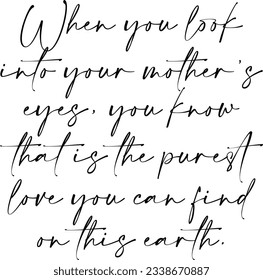 When you look
into your mother's
eyes, you know
that is the purest
love you can find
on this earth.
shutterstock.com · 2338670887